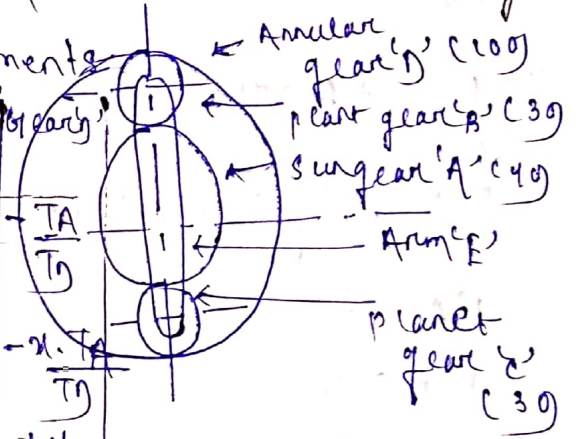 ments
Annular
gear 'D' (100)
gear 'B'
planet gear 'B' (30)
sun gear 'A' (40)
- TA
TD
Arm 'E'
planet
gear 'C'
(30)
-x. TA
TD